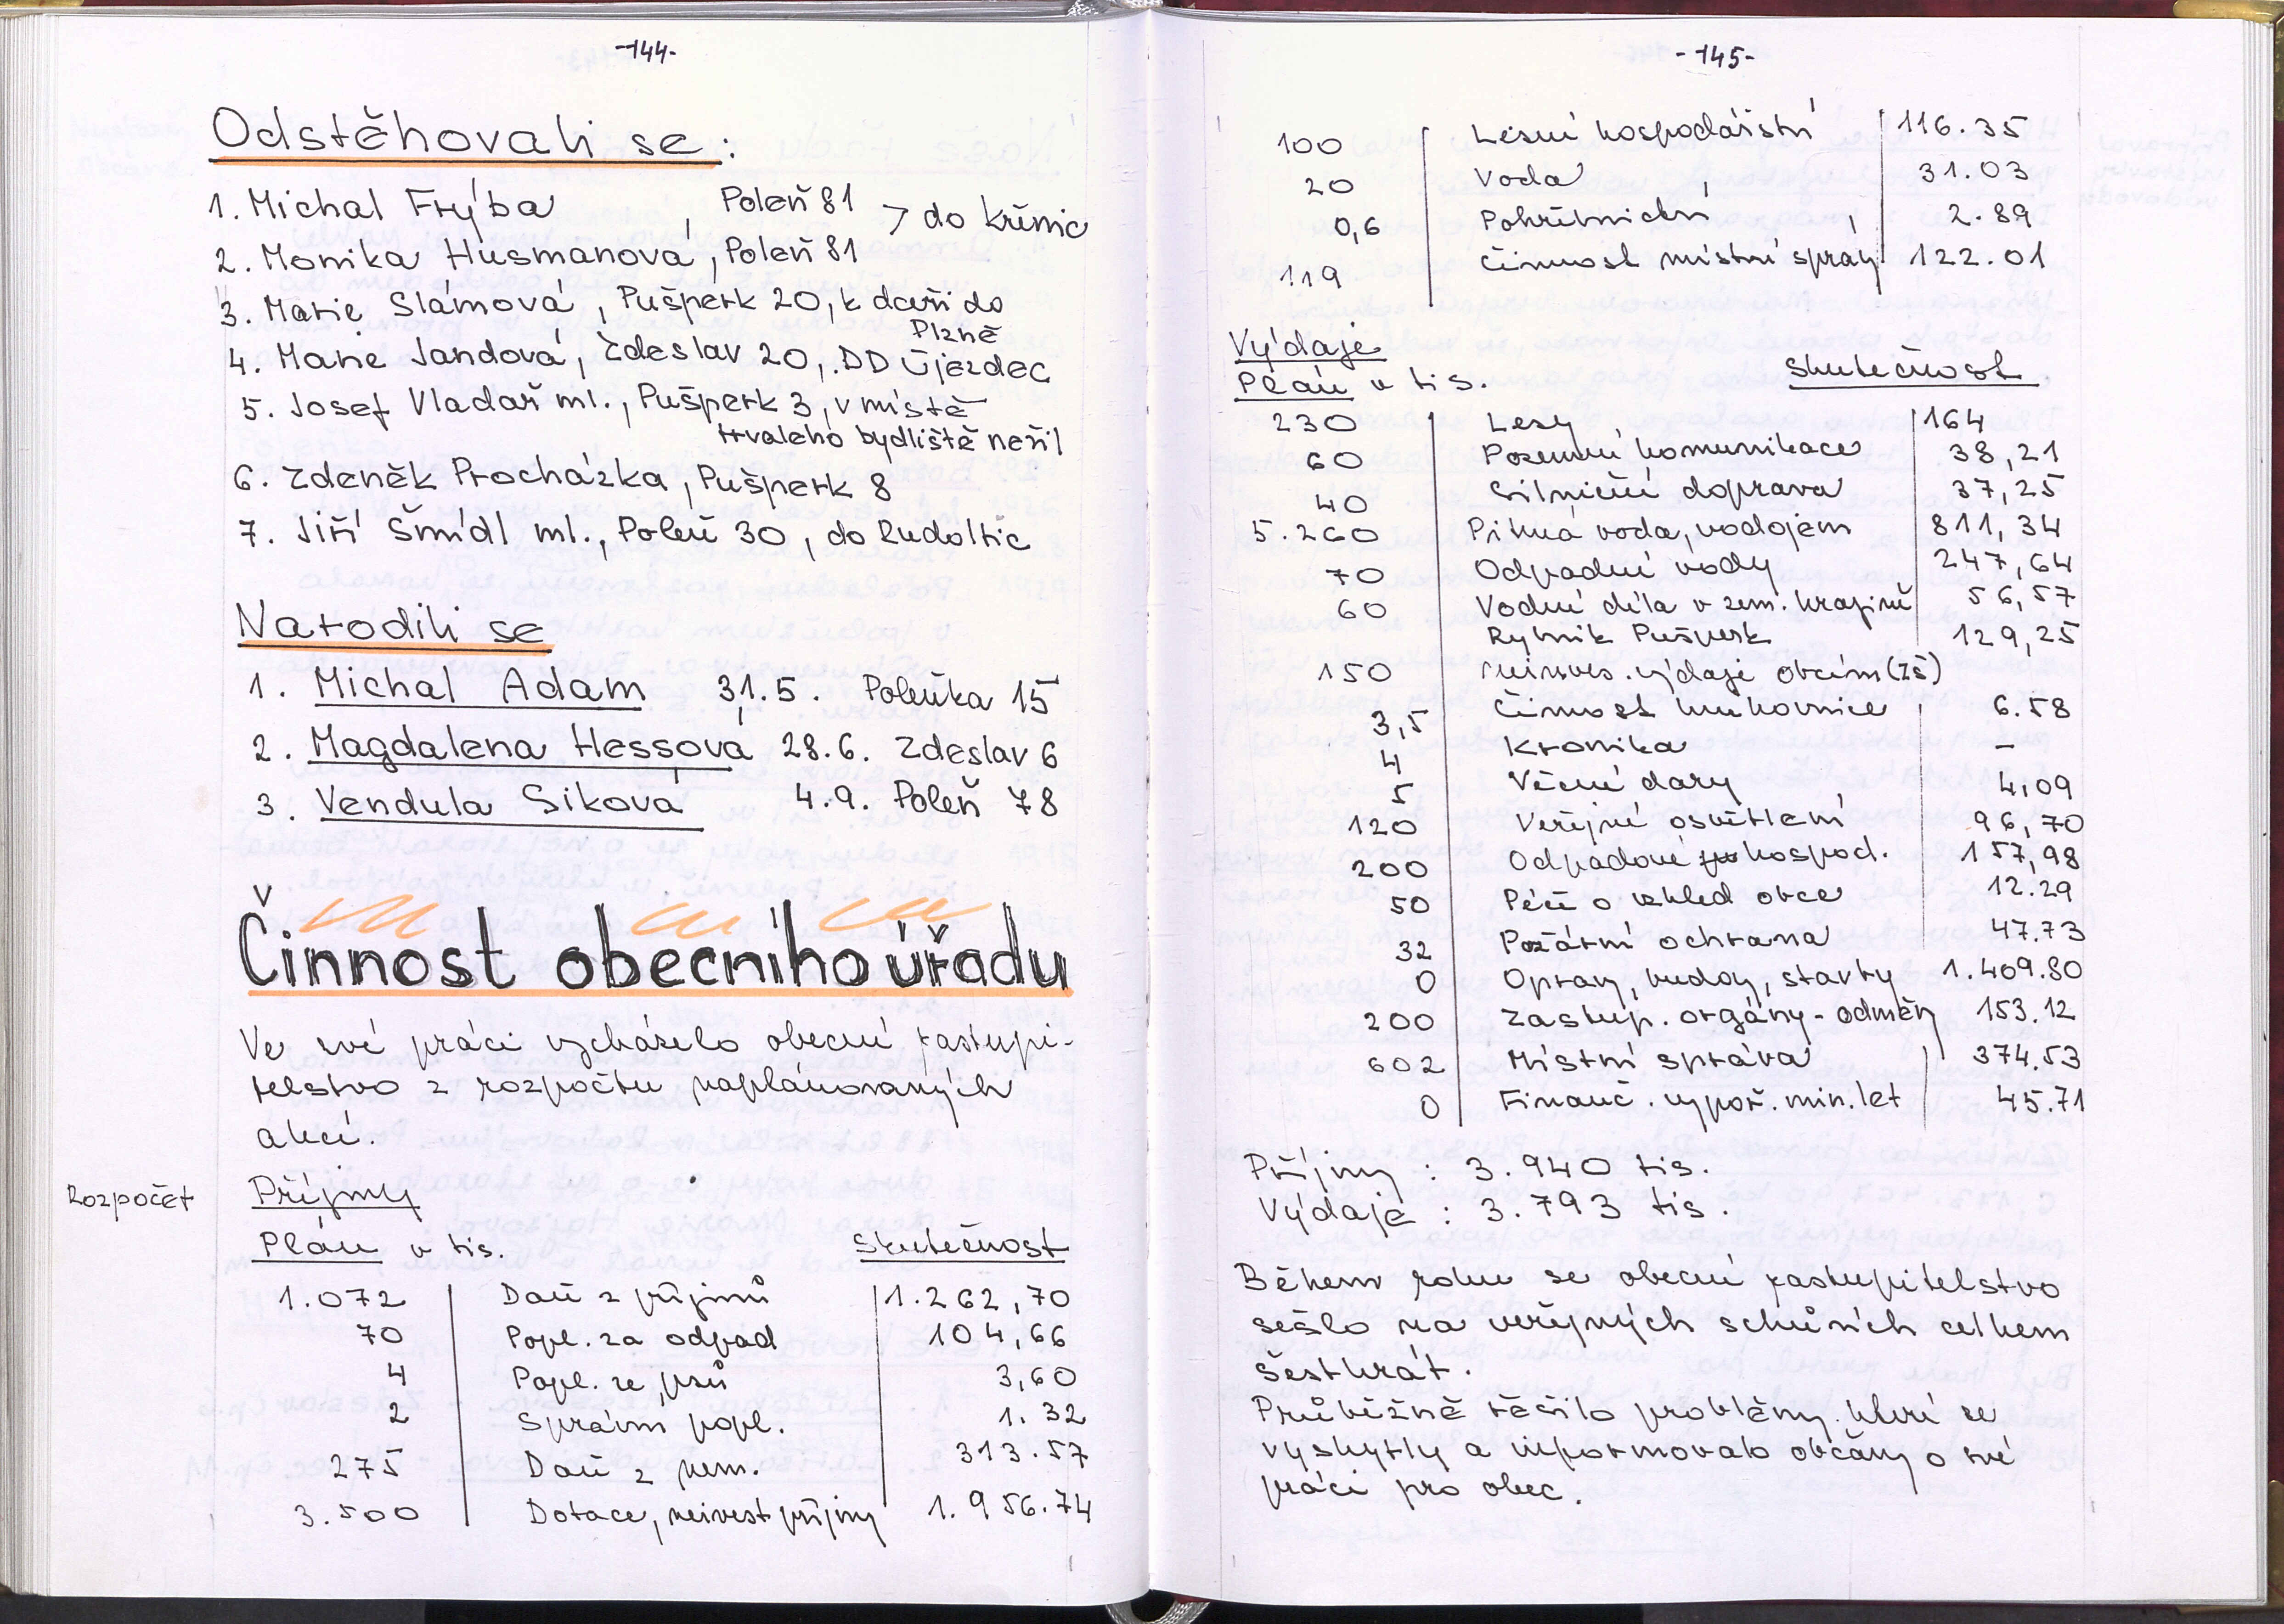 -144-
Odstěhovali se:
1. Michal Frýba, Poleň 81 > do Křenic
2. Monika Husmanová, Poleň 81
3. Marie Slámová, Pušperk 20, k dceři do
Plzně
4. Marie Jandová, Zdeslav 20, DD Újezdec
5. Josef Vladař ml., Pušperk 3, v místě
trvalého bydliště nežil
6. Zdeněk Procházka, Pušperk 8
7. Jiří Šmídl ml., Poleň 30, do Rudoltic
Narodili se
1. Michal Adam 31.5. Poleňka 15
2. Magdalena Hessová 28.6. Zdeslav 6
3. Vendula Siková 4.9. Poleň 78
Činnost obecního úřadu
Ve své práci vycházelo obecní zastupi-
telstvo z rozpočtu naplánovaných
akcí.
Rozpočet Příjmy
Plán v tis. Skutečnost
1.072 Daň z příjmů 1.262,70
70 Popl. za odpad 104,66
4 Popl. ze psů 3,60
2 Správní popl. 1.32
275 Daň z nem. 313.57
3.500 Dotace, neinvest příjmy 1.956.74
-145-
100 Lesní hospodářství 116.35
20 Voda 31.03
0,6 Pohřebnictví 2.89
119 Činnost místní správy 122.01
Výdaje
Plán v tis. Skutečnost
230 Lesy 164
60 Pozemní komunikace 38,21
40 Silniční doprava 37,25
5.260 Pitná voda, vodojem 811,34
70 Odpadní vody 247,64
60 Vodní díla v zem. krajině 56,57
Rybník Pušperk 129,25
150 neinves. výdaje obcím (ZŠ)
3,5 Činnost knihovnice 6.58
4 Kronika -
5 Věcné dary 4,09
120 Veřejné osvětlení 96,70
200 Odpadové hospod. 157,98
50 Péče o vzhled obce 12.29
32 Požární ochrana 47.73
0 Opravy, budov, stavby 1.409.80
200 Zastup. orgány - odměny 153.12
602 Místní správa 374.53
0 Finanč. vypoř. min. let 45.71
Příjmy : 3.940 tis.
Výdaje : 3.793 tis.
Během roku se obecní zastupitelstvo
sešlo na veřejných schůzích celkem
šestkrát.
Průběžně řešilo problémy které se
vyskytly a informovalo občany o své
práci pro obec.